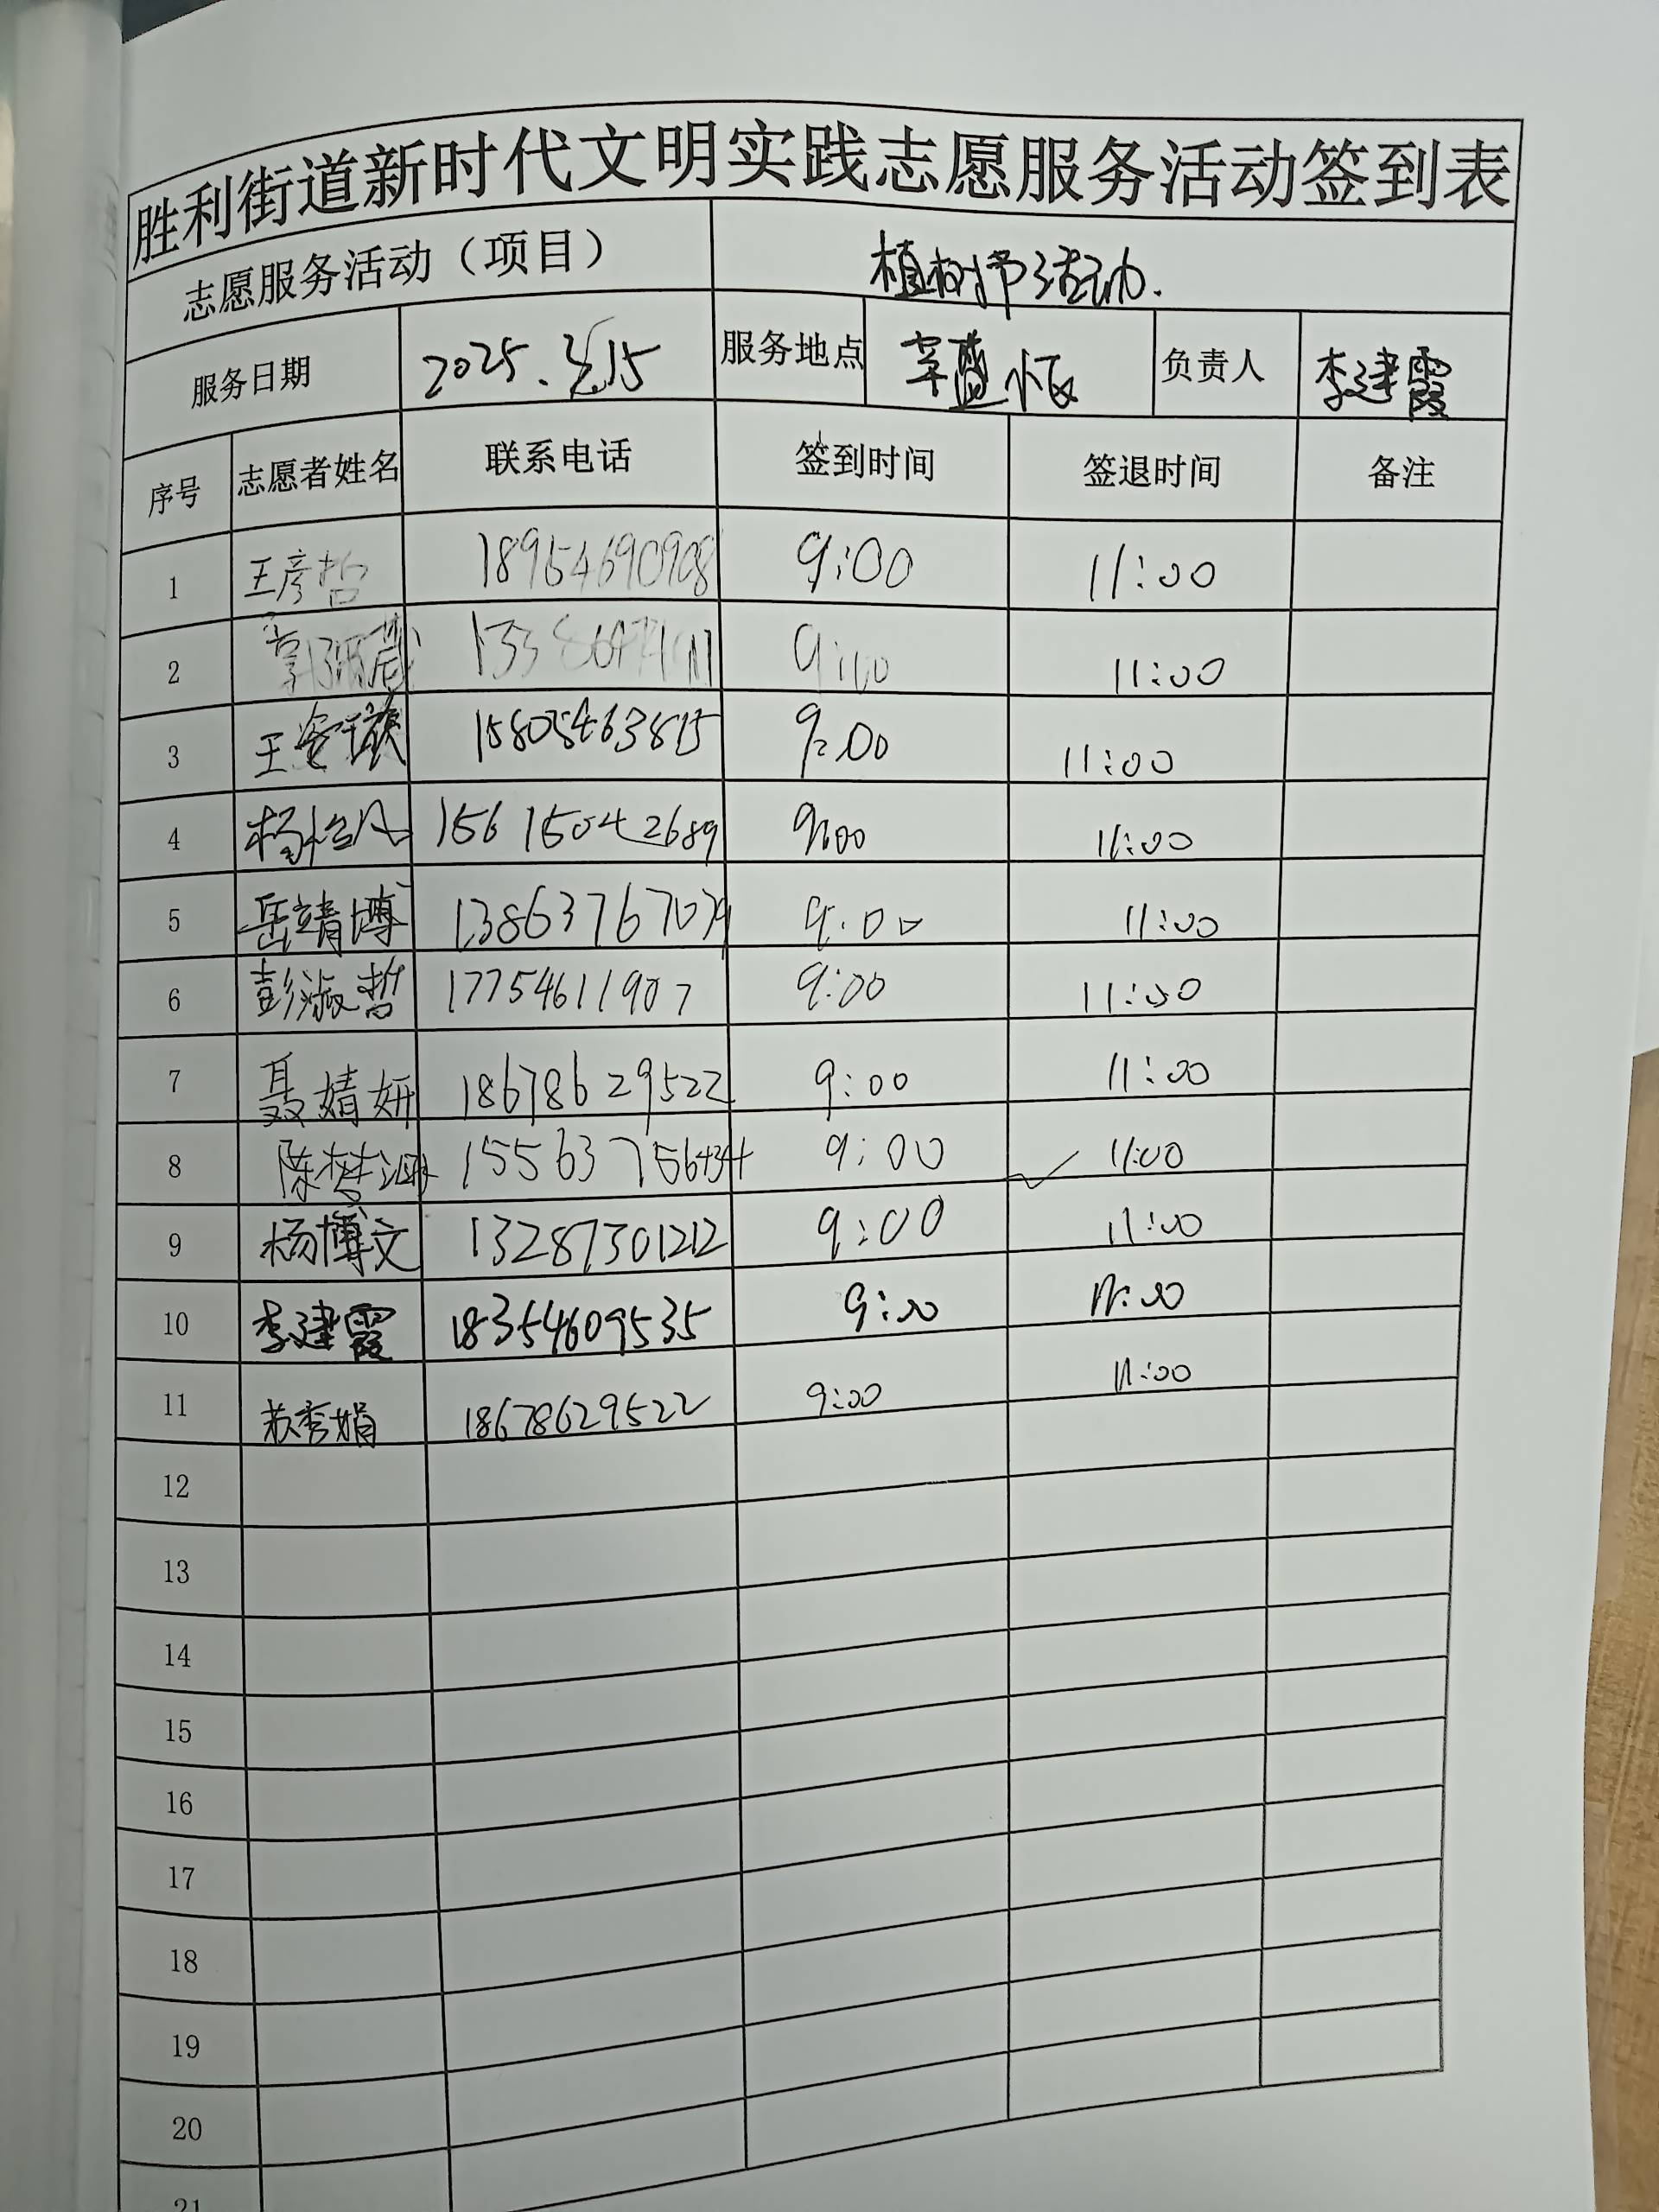 胜利街道新时代文明实践志愿服务活动签到表
志愿服务活动（项目） 植树节活动.
服务日期 2025.3.15 服务地点 辛盛小区 负责人 李建霞
序号 志愿者姓名 联系电话 签到时间 签退时间 备注
1 王彦哲 18954690908 9:00 11:00
2 郭 9:00 11:00
3 王 15805463815 9:00 11:00
4 杨 15615042689 9:00 11:00
5 岳靖博 13863767079 9:00 11:00
6 彭淑哲 17754611907 9:00 11:00
7 聂婧妍 18678629522 9:00 11:00
8 陈梦 9:00 11:00
9 杨博文 13287301212 9:00 11:00
10 李建霞 18354609535 9:00 11:00
11 苏秀娟 18678629522 9:00 11:00
12
13
14
15
16
17
18
19
20
21